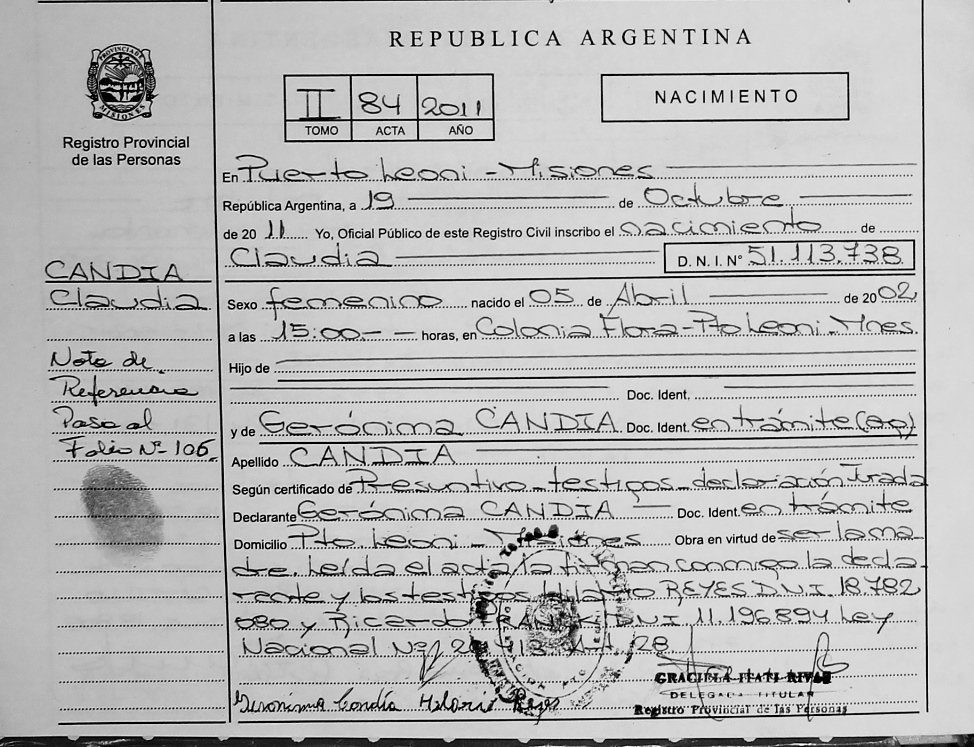 REPUBLICA ARGENTINA
PROVINCIA DE MISIONES
Registro Provincial
de las Personas
II 84 2011
TOMO ACTA AÑO
NACIMIENTO
En Puerto Leoni - Misiones
República Argentina, a 19 de Octubre
de 20 11 Yo, Oficial Público de este Registro Civil inscribo el nacimiento de
Claudia D.N.I. N° 51.113.738
Sexo femenino nacido el 05 de Abril de 2002
a las 15:00.- horas, en Colonia Flora - Pto Leoni - Mnes.
Hijo de
Doc. Ident.
y de Gerónima CANDIA Doc. Ident. en trámite
Apellido CANDIA
Según certificado de Presuntivo - testigos - declaración Jurada
Declarante Gerónima CANDIA Doc. Ident. en trámite
Domicilio Pto Leoni - Misiones Obra en virtud de ser la ma
dre. Leída el acta la firman conmigo la decla
rante y los testigos Hilario REYES D.N.I 18.782
080 y Ricardo DNI 11.196894 Ley
Nacional Nº 28
CANDIA
Claudia
Nota de
Referencia
Pasa al
Folio Nº 106
Geronima Candia Hilario Reyes
GRACIELA ITATI RIVAS
DELEGADA TITULAR
Registro Provincial de las Personas